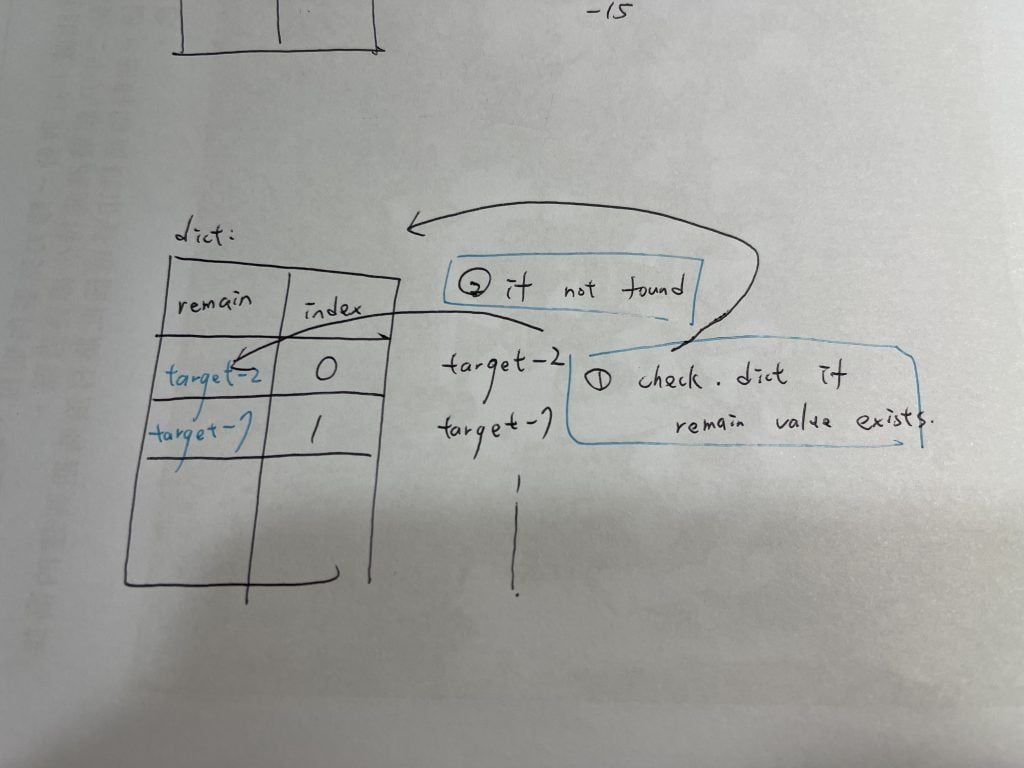 -15
dict:
remain index
② if not found
target-2 0
target-7 1
target-2
target-7
① check. dict if
remain value exists.